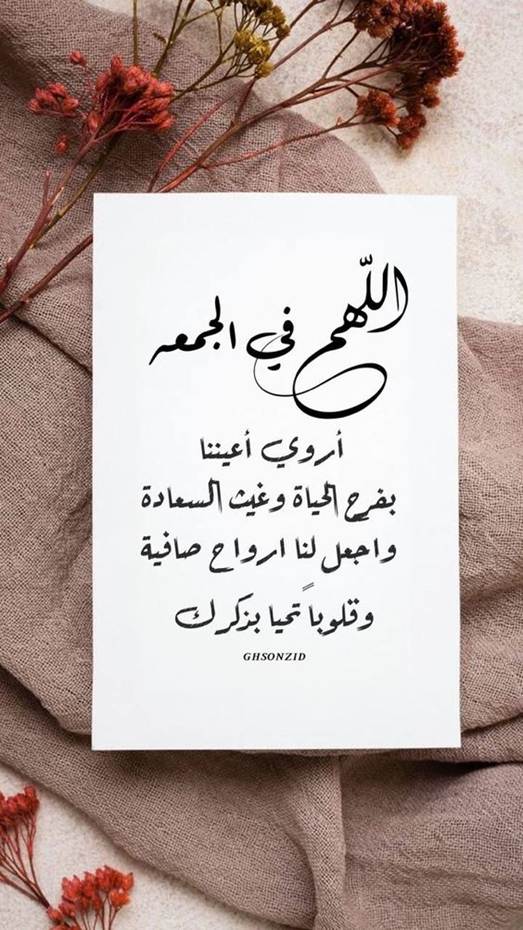 اللّهم في الجمعه
أروي أعيننا
بفرح الحياة وغيث السعادة
واجعل لنا ارواح صافية
وقلوباً تحيا بذكرك
GHSONZID